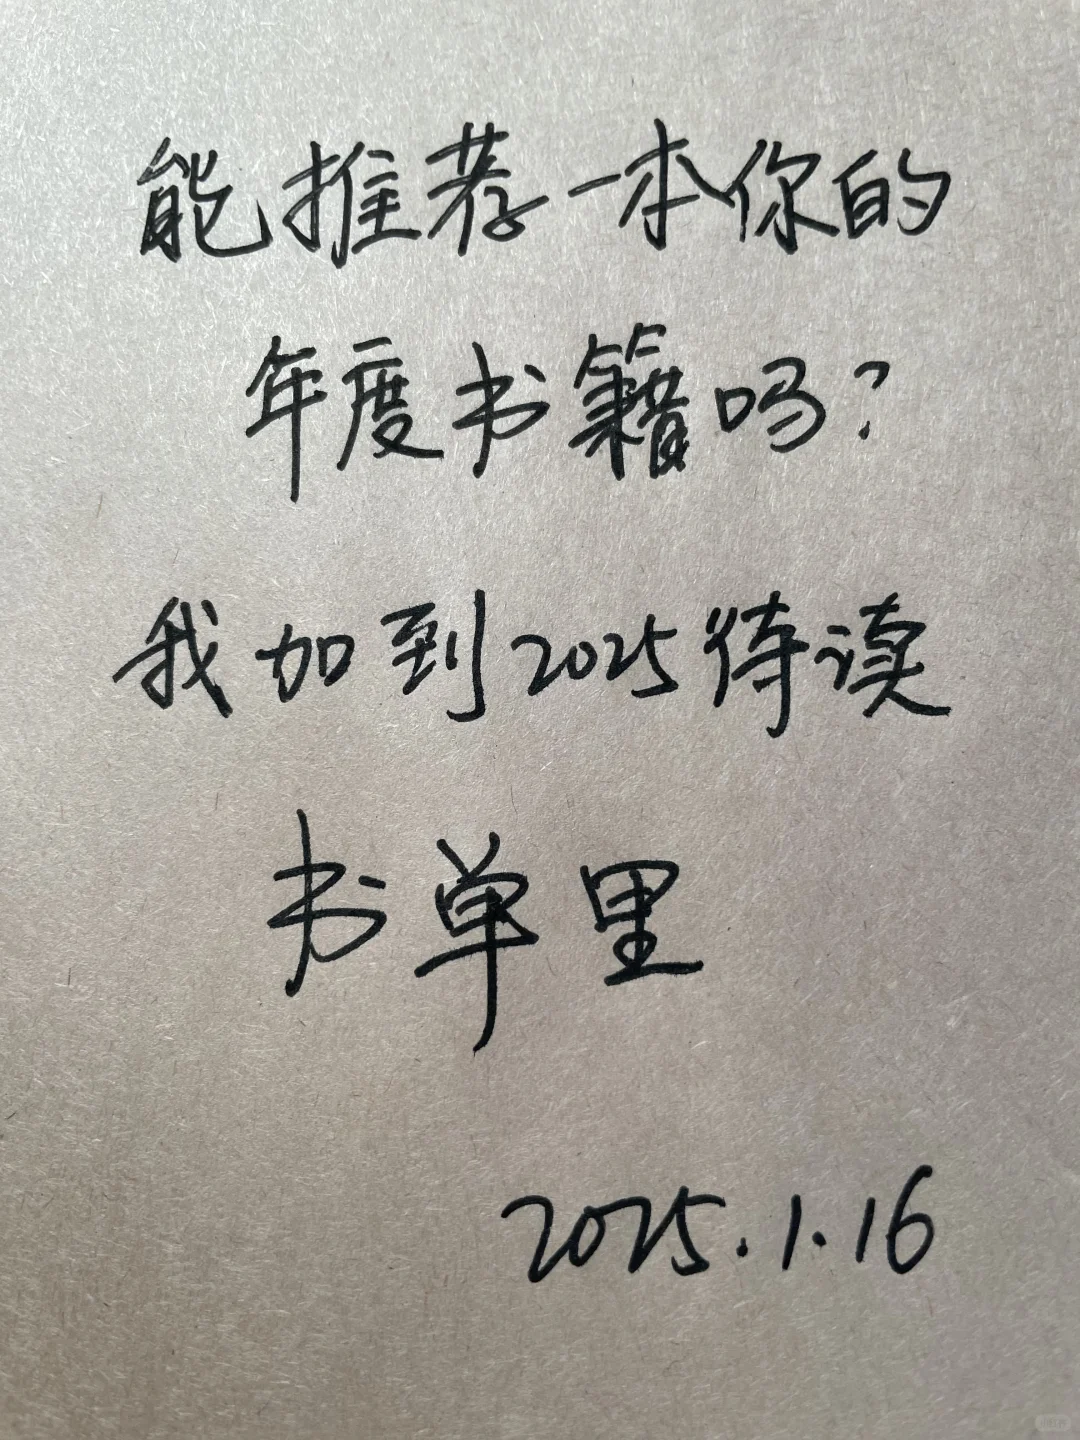 能推荐一本你的
年度书籍吗?
我加到2025待读
书单里
2025.1.16